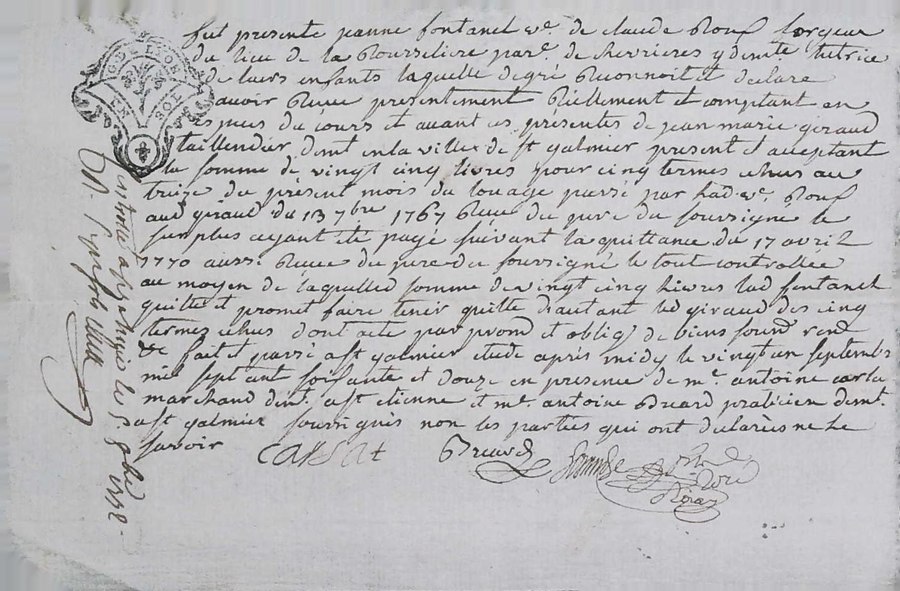 fut presente jeanne fontanel ve. de claude Roux forgeur
du lieu de la Rousseliere parse. de chevrieres y demte. tutrice
de leurs enfants laquelle degré Reconnoit et declare
avoir Reçue presentement Réellement et comptant en
especes du cours et avant ces présentes de jean marie giraud
taillendier demt. en la ville de st galmier present et acceptant
la somme de vingt cinq livres pour cinq termes echus au
treize du présent mois du louage passé par lad. ve. Roux
aud giraud du 13 7bre 1767 Reçue du juré du soussigné le
surplus ayant eté payé suivant la quittance du 17 avril
1770 aussi Reçue du juré du soussigné le tout controllée
au moyen de laquelled somme de vingt cinq livres lad fontanel
quitte et promet faire tenir quitte d'autant led giraud des cinq
termes echus dont acte par prom et oblig de biens soum renon
&c fait et passé a st galmier etude après midy le vingt un septembre
mil sept cent soixante et douze en presence de mr. antoine
marchand demt. a st etienne et mr. antoine Bruard praticien demt.
a st galmier soussignés non les parties qui ont declarées ne le
savoir Bruard